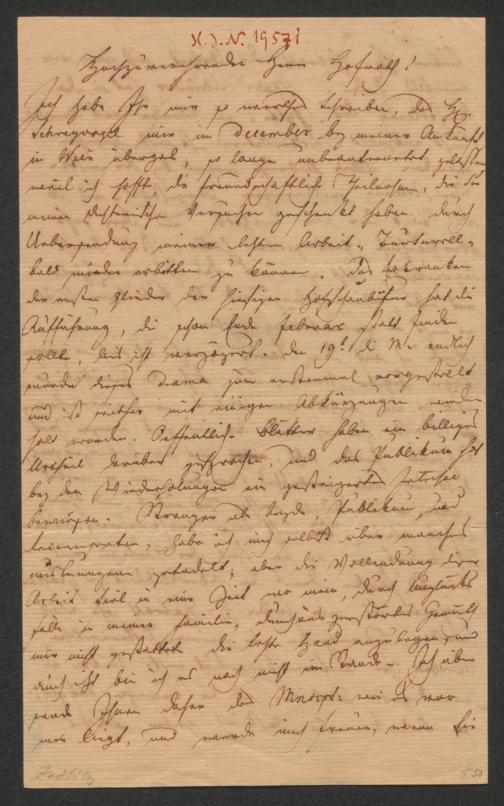 H. J. N. 19571
Hochzuverehrender Herr Hofrath!
Ich habe Ihr mir so werthes Schreiben, das H.
Schreyvogel mir im December bey meiner Ankunft
in Wien übergab, so lange unbeantwortet gelassen
weil ich hoffte, die freundschaftliche Theilnahme, die Sie
meinen dichterischen Versuchen geschenkt haben, durch
Uebersendung meiner letzten Arbeit „Turturell"
bald wieder erbitten zu können. Das Erkranken
der ersten Glieder der hiesigen Hofschaubühne hat die
Aufführung, die schon Ende Februar statt finden
sollte, bis itzt verzögert. Den 19t d. M. endlich
wurde dieses Drama zum erstenmal vorgestellt
und ist seither mit einigen Abkürzungen wieder
holt worden. Oeffentliche Blätter haben ein billiges
Urtheil darüber gesprochen, und das Publikum hat
bey den Wiederholungen ein gesteigertes Interesse
bewiesen. Strenger als beyde, Publikum und
Recensenten, habe ich mich selbst über manches
mislungene getadelt; aber die Vollendung dieser
Arbeit fiel in eine Zeit wo mein, durch Unglücks
fälle in meiner Familie, durchaus zerstörtes Gemüth
mir nicht gestattete die letzte Hand anzulegen, und
auch itzt bin ich es noch nicht im Stande. Ich über
sende Ihnen daher das Mnscpt. wie es vor
mir liegt, und werde mich freuen, wenn Sie
Zedlitz
550